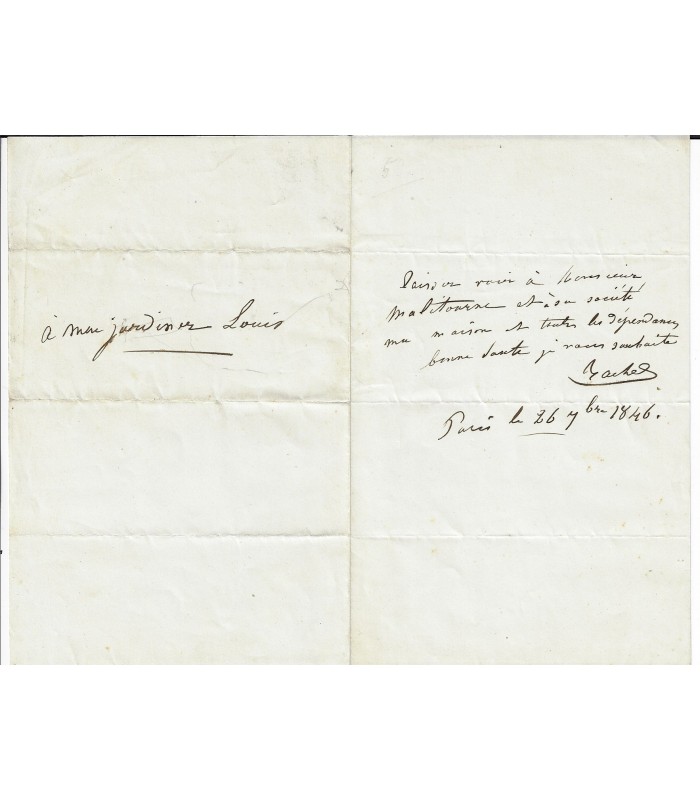 à mon jardinier Louis
laissez voir à Monsieur
Malitourne et à sa société
ma maison et toutes les dépendances
bonne santé je vous souhaite
Rachel
Paris le 26 7bre 1846.